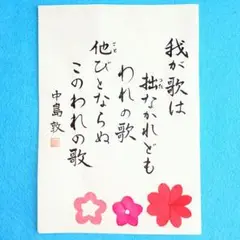 我が歌は
拙なかれども
われの歌
他びとならぬ
このわれの歌
中島敦